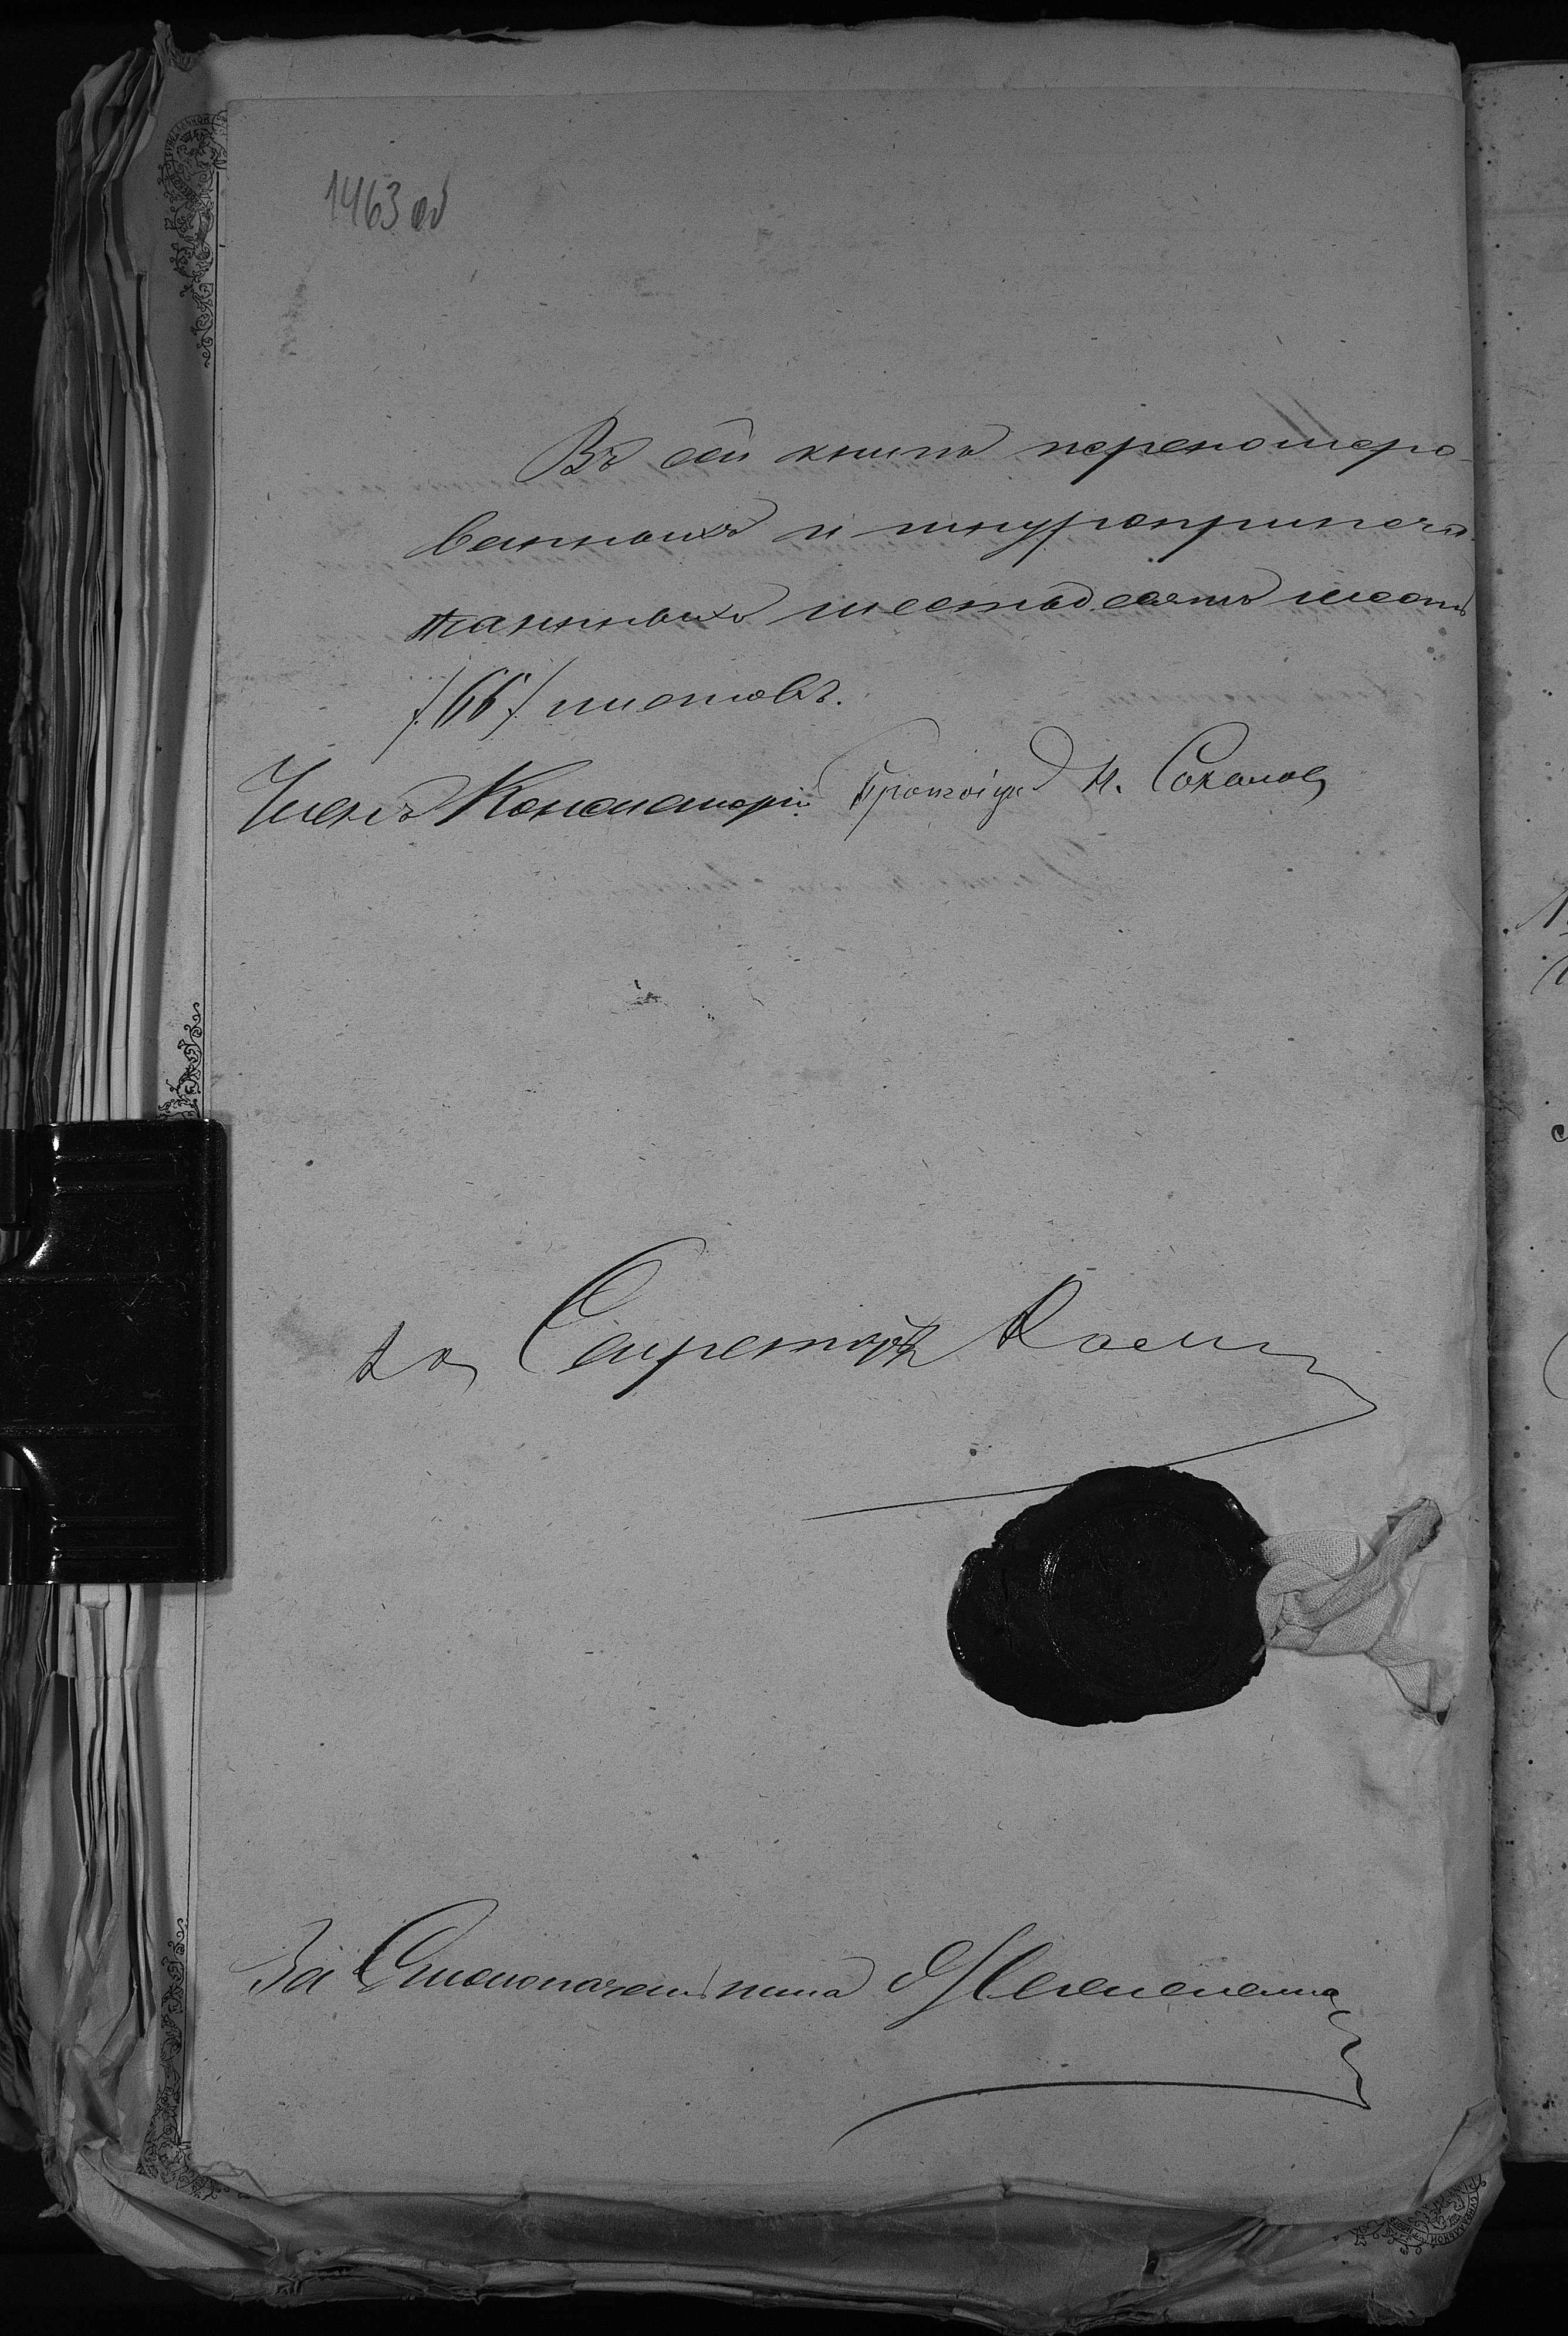 1463 об
Въ сей книгѣ переномеро-
ванныхъ и шнуроприпеча-
танныхъ шестьдесятъ шесть
/66/ листовъ.
Членъ Консисторіи Протоіерей Н. Соколовъ
Секретарь
За Столоначальника